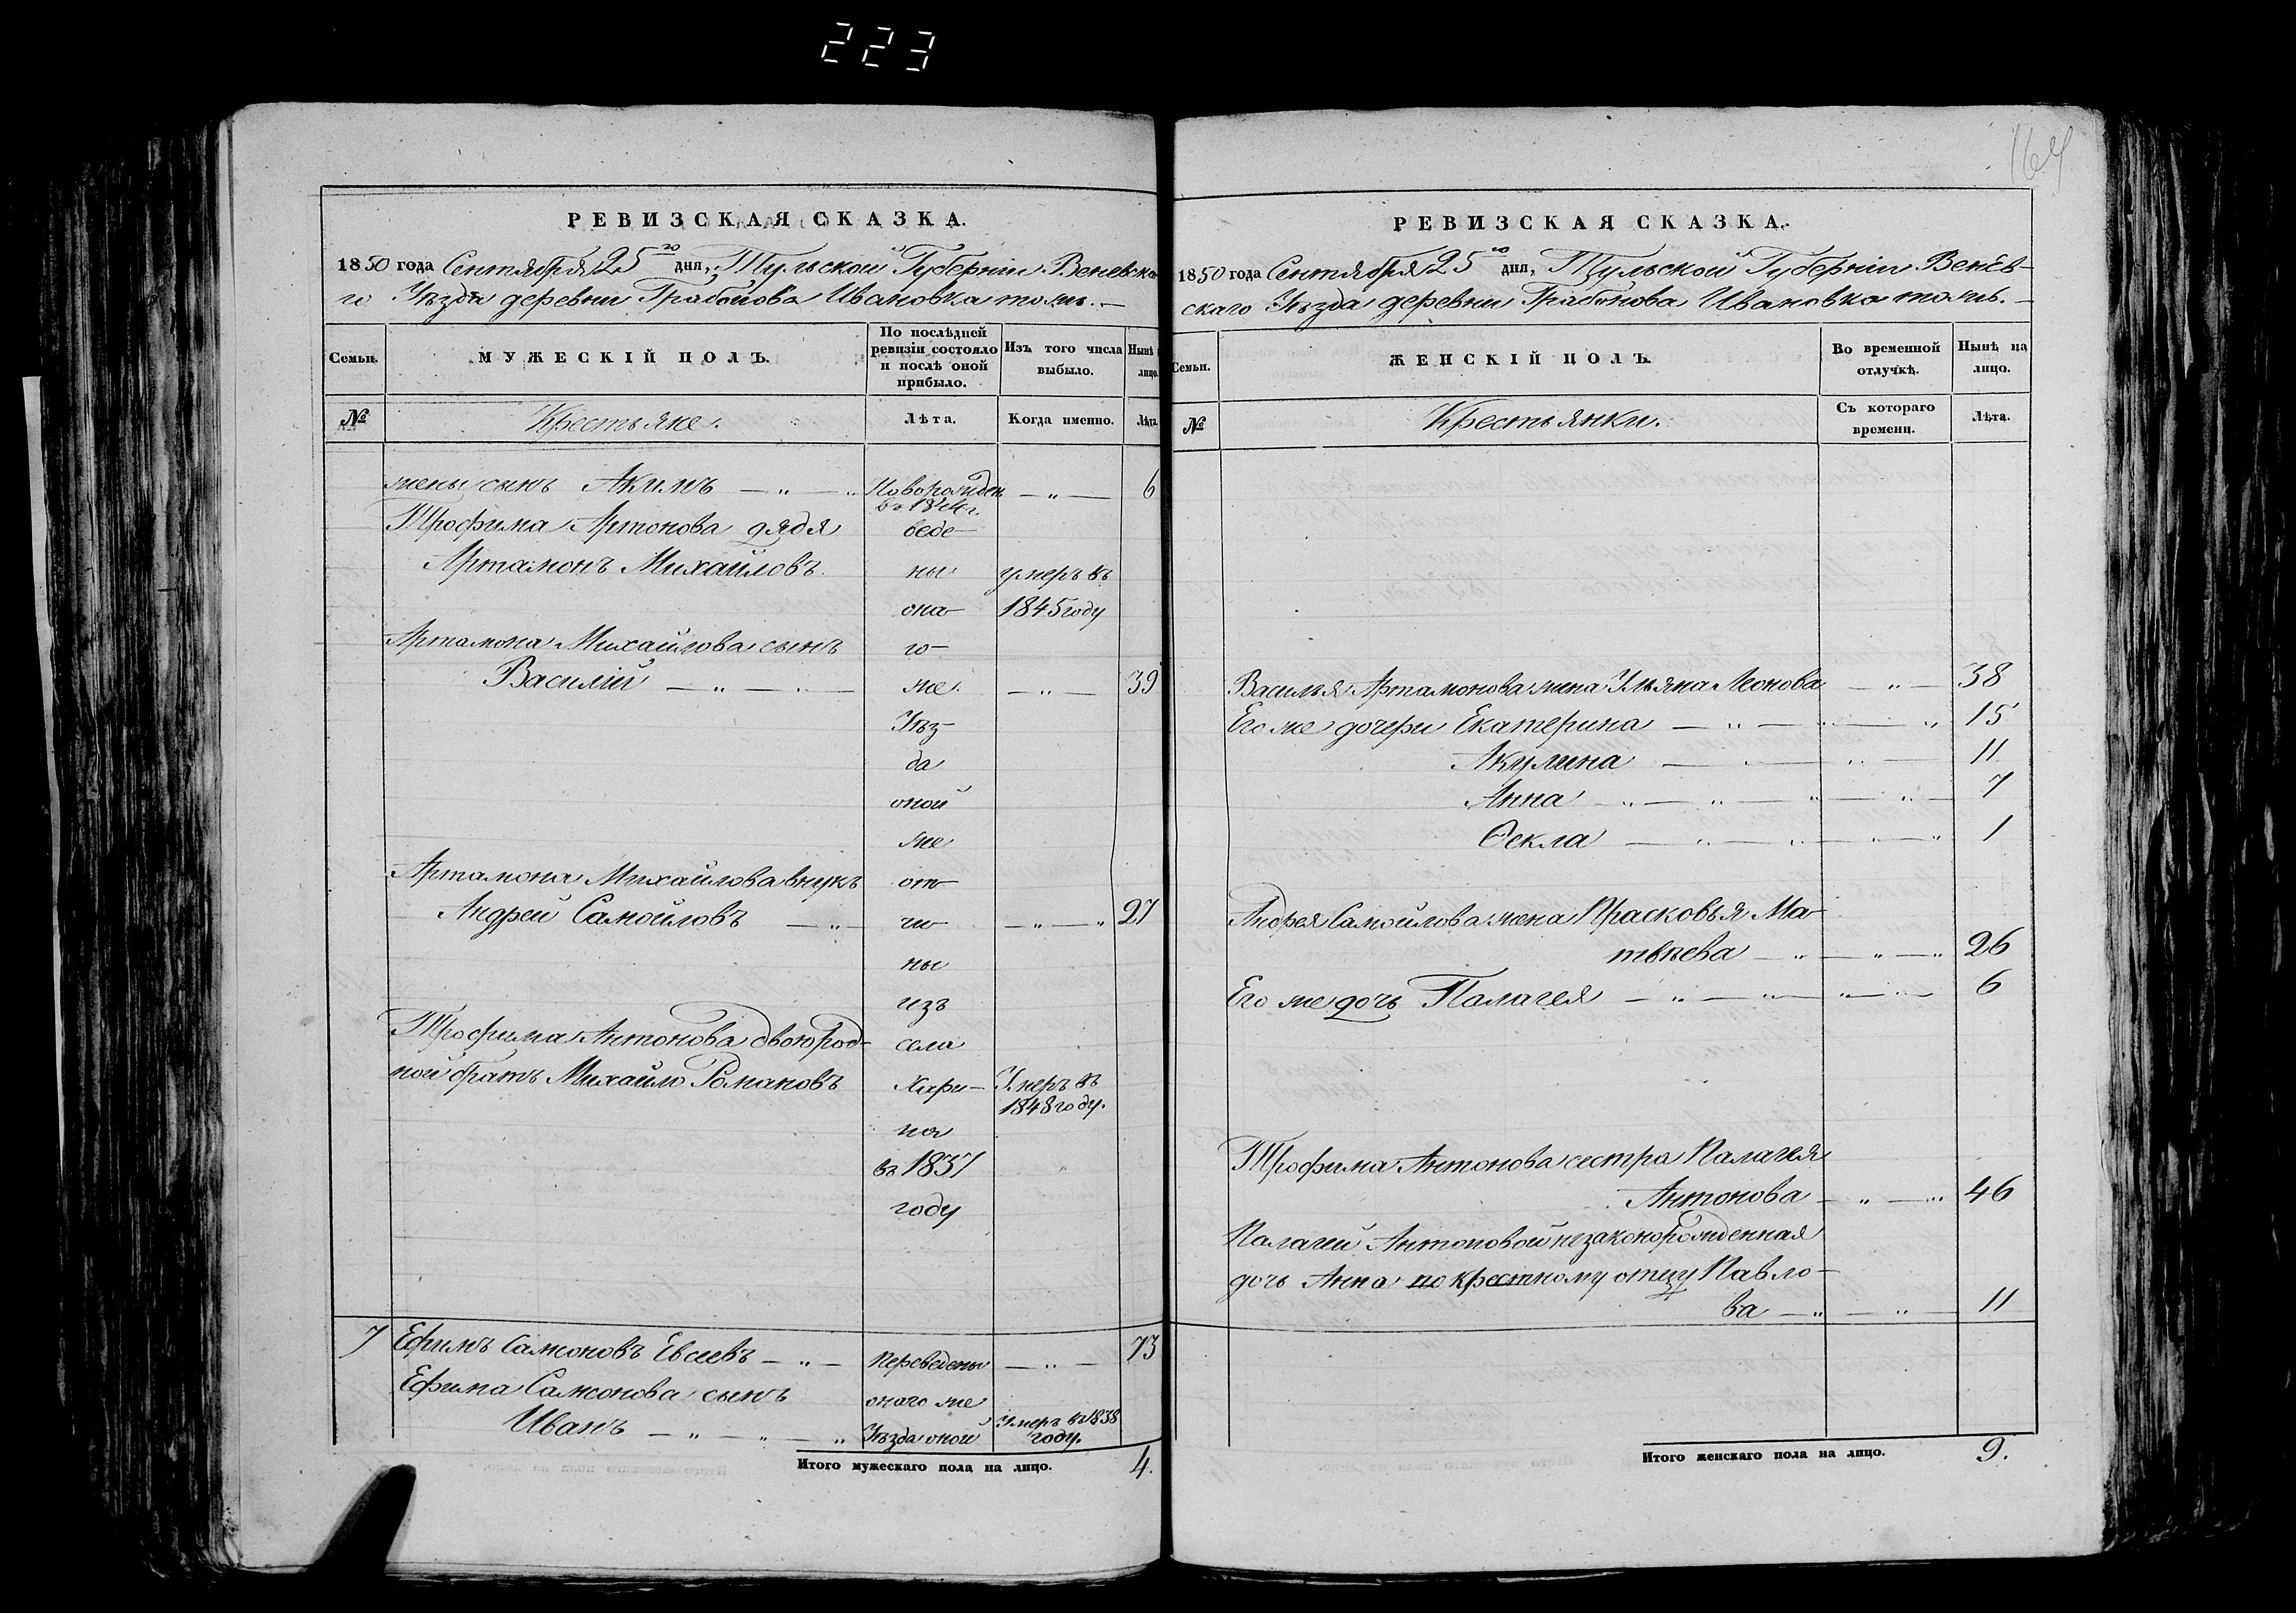 223
РЕВИЗСКАЯ СКАЗКА.
1850 года Сентября 25го дня, Тульской Губерніи Веневска-
го Уѣзда деревни Грабонова Ивановка тожъ.
Семьи.
МУЖЕСКІЙ ПОЛЪ.
По послѣдней ревизіи состояло и послѣ оной прибыло.
Изъ того числа выбыло.
Нынѣ лицо.
№
Крестьяне.
Лѣта.
Когда именно.
Лѣта
жены сынъ Акимъ Новорожден 6
въ 184 г.
Трофима Артонова дядя веде-
Артамонъ Михайловъ ны умеръ въ
она- 1845 году
Артамона Михайлова сынъ го-
Василій же 39
Уѣз-
да
оной
же
Артамона Михайлова внукъ от-
Андрей Самойловъ чи- 27
ны
изъ
Трофима Антонова двоюрод- села
ной братъ Михайло Романовъ Хари- Умеръ въ
1848 году.
на
въ 1837
году
7 Ефимъ Самсоновъ Евсеевъ Переведены 73
Ефима Самсонова сынъ онаго же
Иванъ Уѣзда оной Умеръ въ 1838
году.
Итого мужескаго пола на лицо. 4.
164
РЕВИЗСКАЯ СКАЗКА.
1850 года Сентября 25го дня, Тульской Губерніи Венев-
скаго Уѣзда деревни Грабонова Ивановка тожъ.
Семьи.
ЖЕНСКІЙ ПОЛЪ.
Во временной отлучкѣ.
Нынѣ на лицо.
№
Крестьянки.
Съ котораго времени.
Лѣта.
Василья Артамонова жена Ульяна Леонова 38
Его же дочери Екатерина 15
Акулина 11
Анна 7
Ѳекла 1
Андрея Самойлова жена Прасковья Ма-
твѣева 26
Его же дочь Палагея 6
Трофима Антонова сестра Палагея
Антонова 46
Палагеи Антоновой незаконорожденная
дочь Анна по крестному отцу Павло-
ва 11
Итого женскаго пола на лицо. 9.